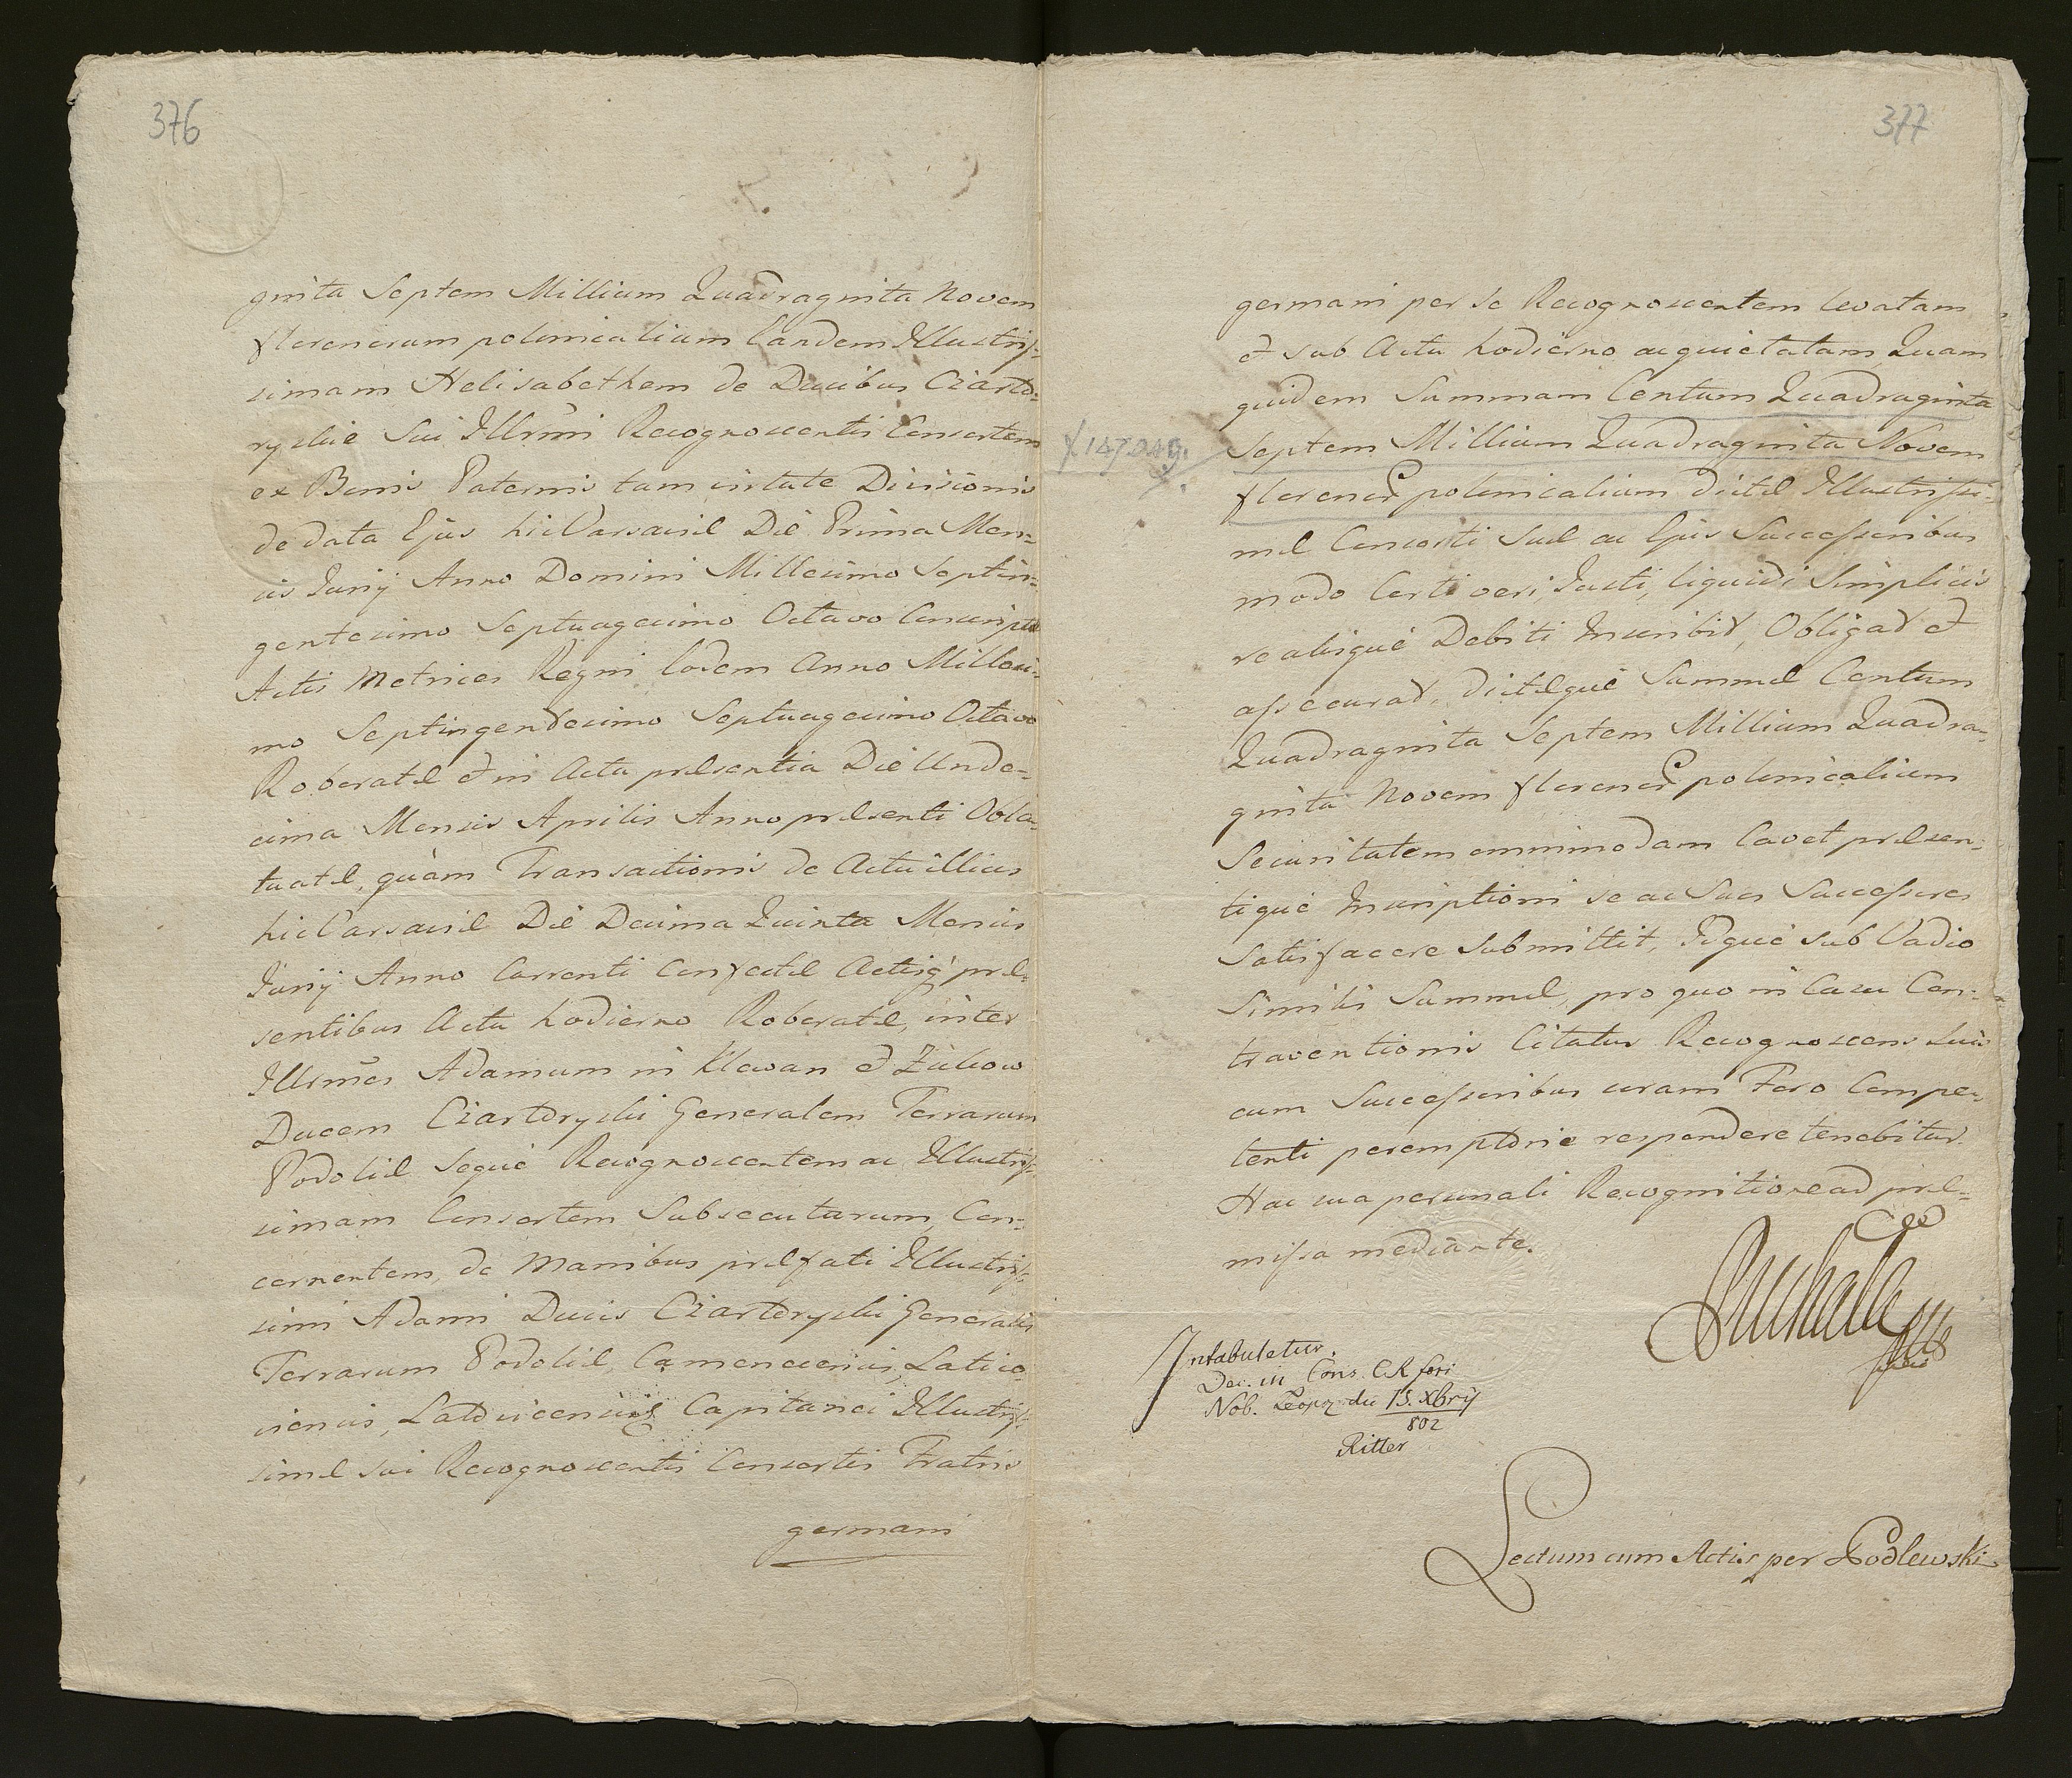 376
ginta Septem Millium Quadraginta Novem
florenorum polonicalium Eandem Illustris-
simam Helisabethem de Ducibus Czarto-
ryskie Sui Illrmi Recognoscentis Consortem
ex Bonis Paternis tam virtute Divisionis
de data Ejus hic Varsaviæ Die Prima Men-
sis Junij Anno Domini Millesimo Septin-
gentesimo Septuagesimo Octavo Conscriptæ
Actis Metrices Regni Eodem Anno Millesi-
mo Septingentesimo Septuagesimo Octavo
Roboratæ et in Acta præsentia Die Unde-
cima Mensis Aprilis Anno præsenti Obla-
tuatæ, quàm Transactionis de Actu illius
hic Varsaviæ Die Decima Quinta Mensis
Junij Anno Currenti Confectæ Actisq præ-
sentibus Actu hodierno Roboratæ, inter
Illrmos Adamum in Klewan et Zukow
Ducem Czartoryski Generalem Terrarum
Podoliæ seque Recognoscentem ac Illustris-
simam Consortem Subsecutarum, Con-
cernentem, de Manibus præfati Illustris-
simi Adami Ducis Czartoryski Generalis
Terrarum Podoliæ, Camenecensis, Latico-
viensis, Latovicensis Capitanei Illustris-
simæ sui Recognoscentis Consortis Fratris
germani
377
germani per se Recognoscentem levatam
et sub Actu hodierno acquietatam, Quam
quidem Summam Centum Quadraginta
f 147,049.
Septem Millium Quadraginta Novem
florenor polonicalium dictæ Illustrissi-
mæ Consorti Suæ ac Ejus Successoribus
modo Certi veri, Justi, liquidi Simplicis
realisque Debiti Inscribit, Obligat et
assecurat, dictæque Summæ Centum
Quadraginta Septem Millium Quadra-
ginta Novem florenor polonicalium
Securitatem omnimodam Cavet præsen-
tique Inscriptioni se ac Suos Successores
Satisfacere Submittit, Idque sub Vadio
Similis Summæ, pro quo in Casu Con-
traventionis Citatus Recognoscens Suis
cum Successoribus coram Foro Compe-
tenti peremptorie respondere tenebitur.
Hac sua personali Recognitione ad præ-
missa mediante.
Intabuletur.
Dec. in Cons. C.R. fori
Nob. Leopol die 15. Xbris
802
Ritter
Lectum cum Actis per Podlewski